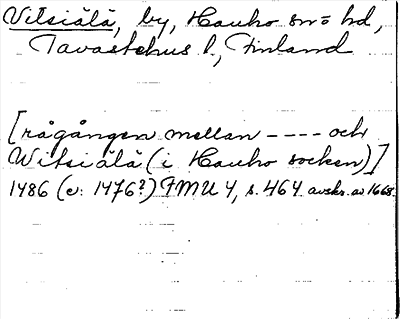 Vitsiälä, by, Hauho sn o hd,
Tavastehus l., Finland
[rågången mellan ---- och
Witsiälä (i Hauho socken)]
1486 (el. 1476?) FMU 4, s. 464 avskr. av 1668.